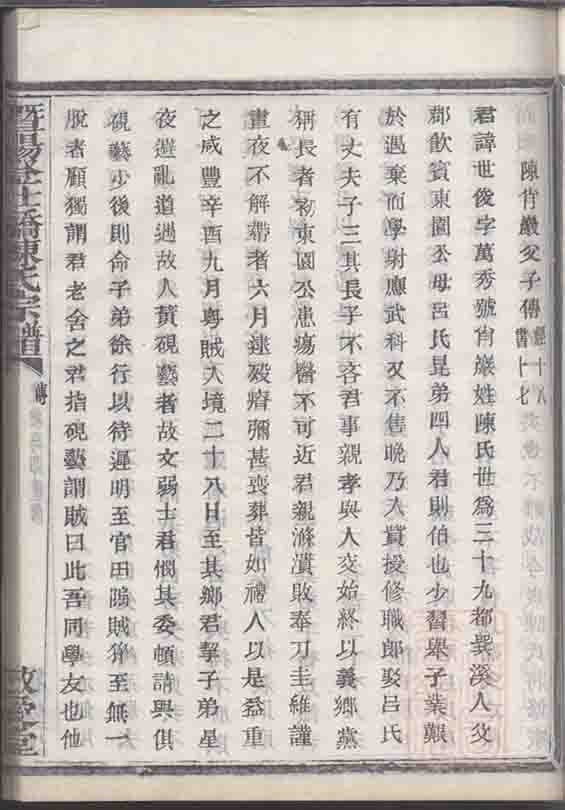 陳肖巖父子傳
君諱世俊字萬秀號肖巖姓陳氏世爲三十九都巽溪人父
郡飲賓東園公母呂氏昆弟四人君則伯也少習舉子業艱
於遇棄而學射應武科又不售晚乃入貲授修職郎娶呂氏
有丈夫子三其長子不吝君事親孝與人交始終以義鄉燕
稱長者初東園公患瘍醫不可近君親滌潰敗奉刀圭維謹
晝夜不解帶者六月逮歿瘠彌甚喪葬皆如禮人以是益重
之咸豐辛酉九月粵賊入境二十八日至其鄉君挈子弟星
夜避亂道遇故人黃硯藝者故文弱士君憫其委頓請與俱
硯藝少後則命子弟徐行以待遲明至官田陽賊猝至無一
脫者顧獨謂君老舍之君指硯藝謂賊曰此吾同學友也他
暨陽 陳氏宗譜
傳